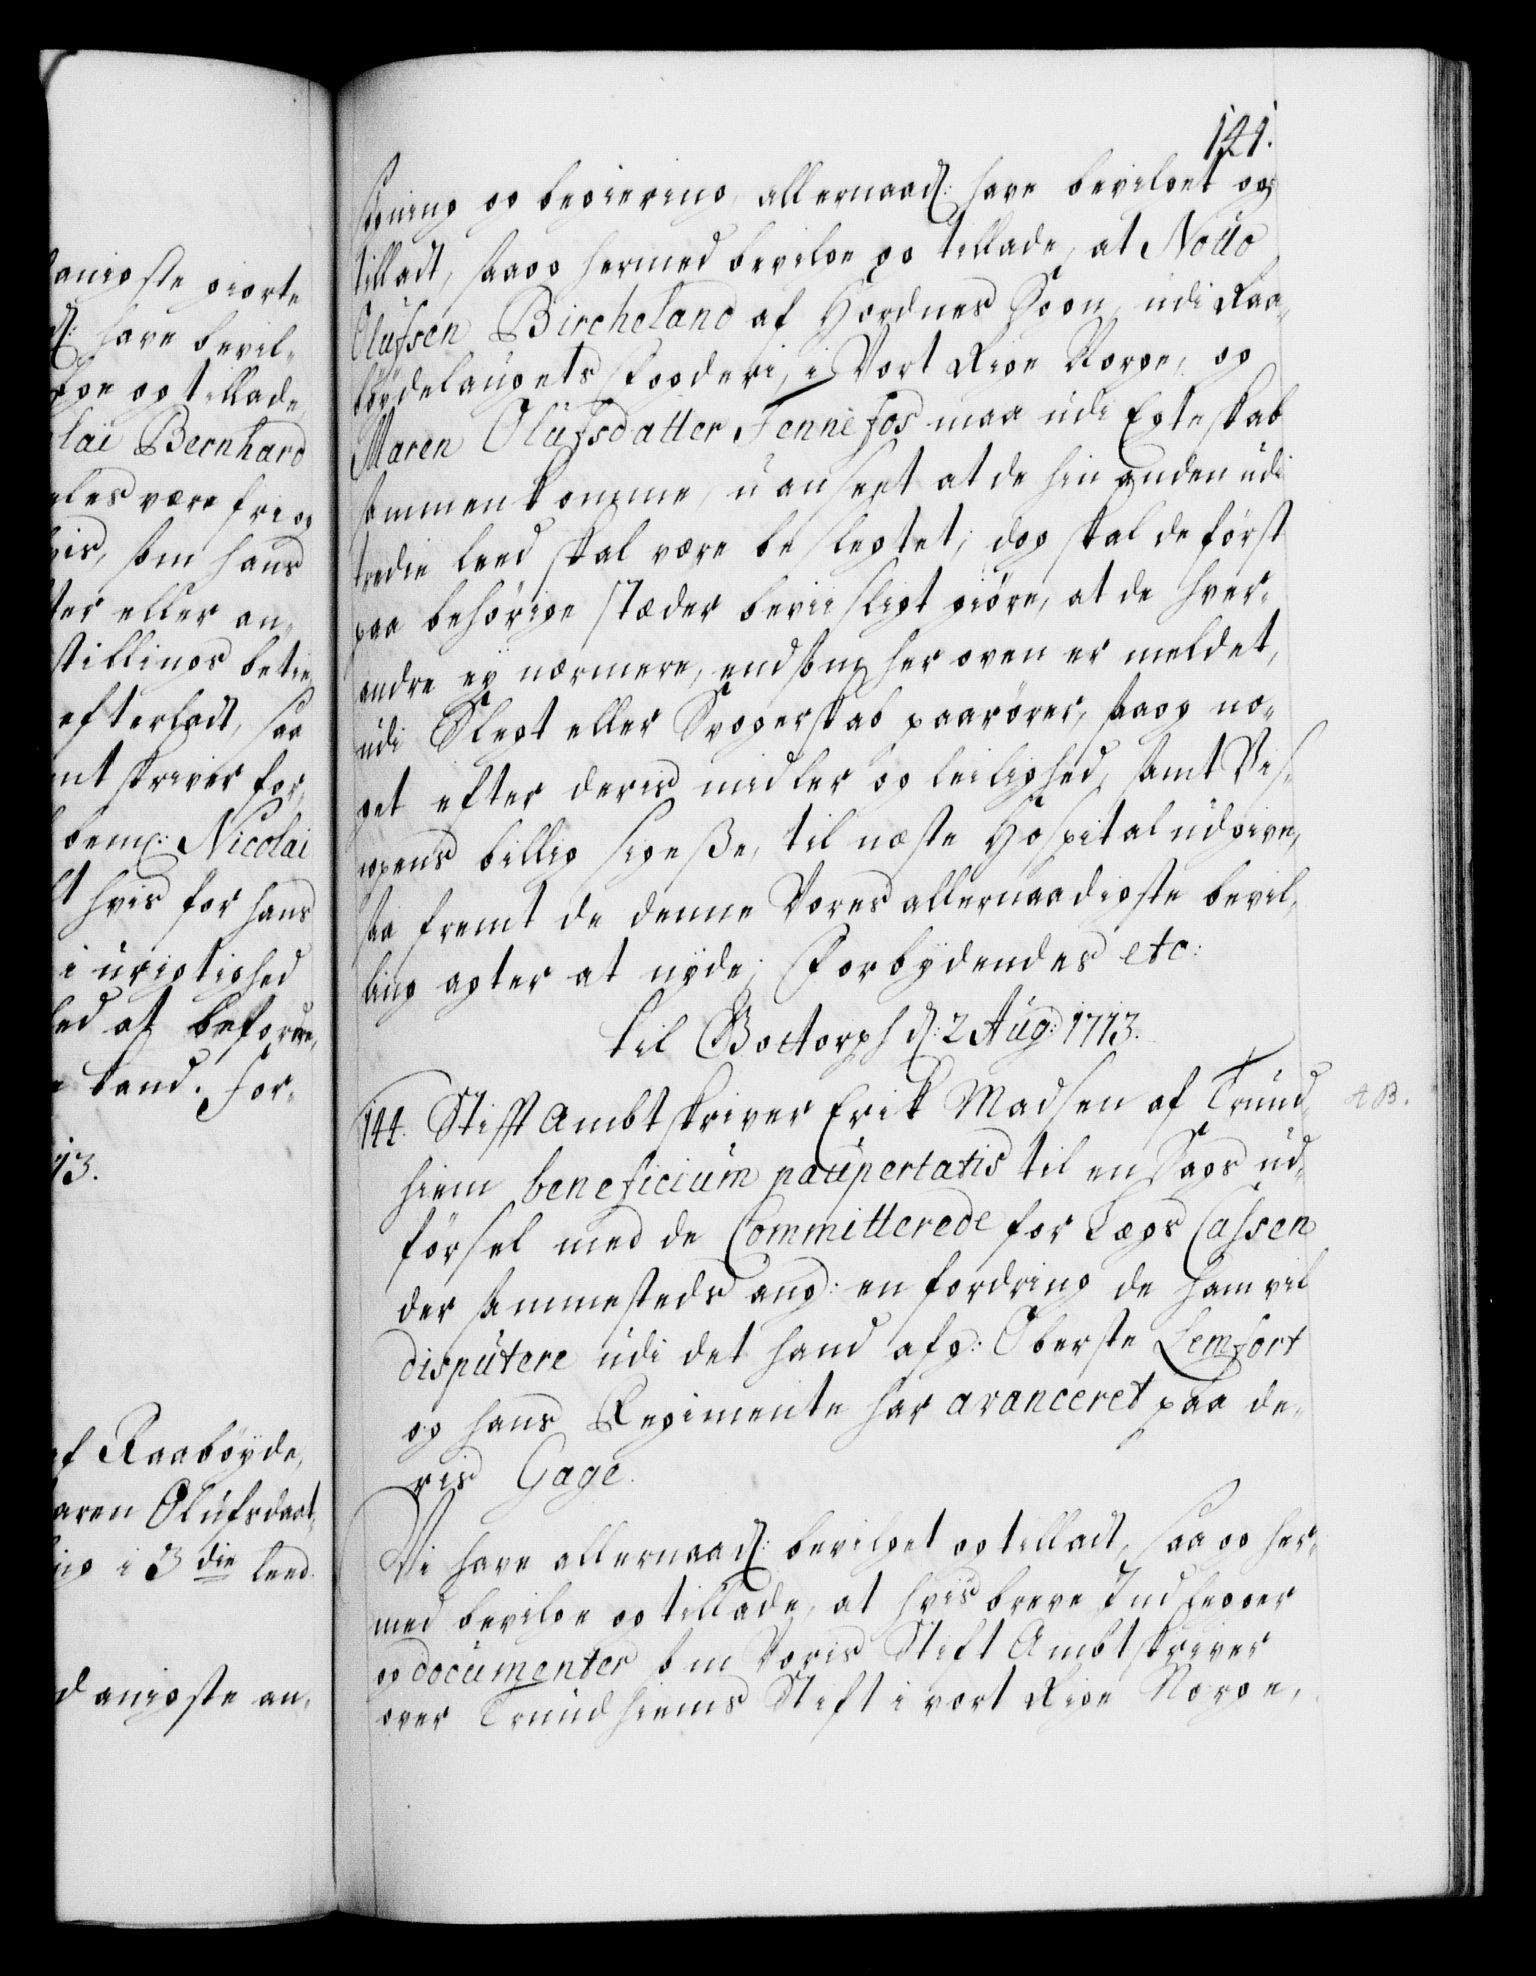 141.
søgning og begiering, allernaad: have bevilget og
tilladt, saa og hermed bevilge og tillade, at Notto
Olufsen Bircheland af Hordnes Sogn, udi Raa-
böydelaugets Fogderi, i Vort Rige Norge, og
Maren Olufsdatter Fennefos maa udi Egteskab
sammenkomme, uanseet at de hin anden udi
tredie leed skal være beslegtet; dog skal de först
paa behörige stæder beviisligt giöre, at de hver-
andre ey nærmere, end som her oven er meldet,
udi Slegt eller Svogerskab paarörer, saa og no-
get efter deris midler og leilighed, samt Bis-
opens billig sigelse, til næste Hospital udgive,
saa fremt de denne Vores allernaadigste bevil-
ling agter at nyde; Forbydendes etc:
til Gottorph d: 2 Aug: 1713.
144. Stifft Ambtskriver Erik Madsen af Trund-
hiem beneficium paupertatis til en Sags ud-
försel med de Committerede for Lægs Cassen
der sammesteds ang: en fordring de ham vil
disputere udi det hand afg: Oberste Lemfort
og hans Regimente har avanceret paa de-
ris Gage.
Vi have allernaad: bevilget og tilladt, saa og her-
med bevilge og tillade, at hvis breve Indlegger
og documenter som Voris Stift Ambtskriver
over Trundhiems Stift i vort Rige Norge,
anigste giorte
have bevil-
lge og tillade
lai Bernhard
eles være fri og
vis, som hans
ter eller an-
stillings betie
efterladt, saa
nt skriver for-
bem: Nicolai
hvis for hans
i urigtighed
ed at befordre,
land. For-
13.
af Raabøyde,
aren Olufsdaat-
ig i 3die leed.
danigste an-